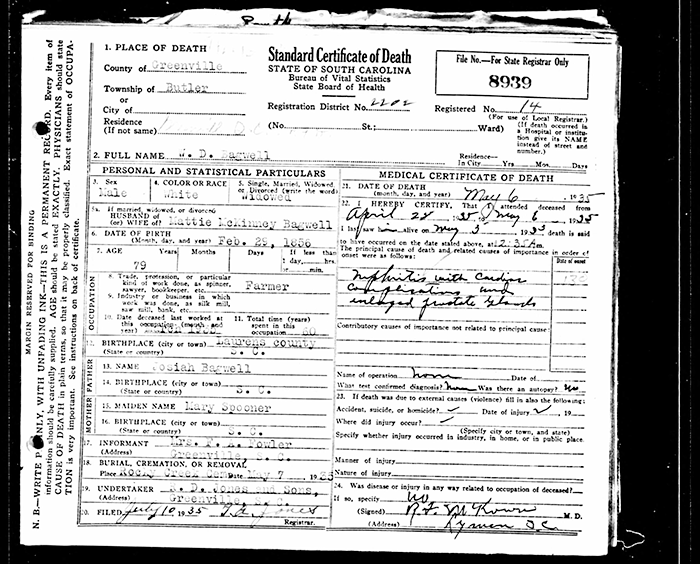 Standard Certificate of Death
STATE OF SOUTH CAROLINA
Bureau of Vital Statistics
State Board of Health
File No.—For State Registrar Only
8939
1. PLACE OF DEATH
County of Greenville
Township of Butler
or
City of
Residence
(If not same)
Registration District No. 2202
Registered No. 14
(For use of Local Registrar.)
(No. St.; Ward)
(If death occurred in
a Hospital or institu-
tion give its NAME
instead of street and
number.)
2. FULL NAME J. D. Bagwell
Residence—
In City Yrs. Mos. Days
PERSONAL AND STATISTICAL PARTICULARS
3. Sex
Male
4. COLOR OR RACE
White
5. Single, Married, Widowed
or Divorced (write the word)
Widowed
5a. If married, widowed, or divorced
HUSBAND of
(or) WIFE of Mattie McKinney Bagwell
6. DATE OF BIRTH
(Month, day, and year) Feb. 29, 1856
7. AGE Years Months Days
79
If less than
1 day, hrs.
or min.
OCCUPATION
8. Trade, profession, or particular
kind of work done, as spinner,
sawyer, bookkeeper, etc. Farmer
9. Industry or business in which
work was done, as silk mill,
saw mill, bank, etc.
10. Date deceased last worked at
this occupation (month and
year)
11. Total time (years)
spent in this
occupation 60
12. BIRTHPLACE (city or town) Laurens county
(State or country) S. C.
FATHER
13. NAME Josiah Bagwell
14. BIRTHPLACE (city or town)
(State or country) S. C.
MOTHER
15. MAIDEN NAME Mary Spooner
16. BIRTHPLACE (city or town)
(State or country) S. C.
17. INFORMANT Mrs. Fowler
(Address) Greenville, S. C.
18. BURIAL, CREMATION, OR REMOVAL
Place Rocky Creek Cem Date May 7 1935
19. UNDERTAKER Jones and Sons,
(Address) Greenville, S. C.
20. FILED July 10 1935 Jones
Registrar.
MEDICAL CERTIFICATE OF DEATH
21. DATE OF DEATH
(month, day, and year) May 6, 1935
22. I HEREBY CERTIFY, That I attended deceased from
April 28 1935 to May 6, 1935
I last saw him alive on May 5 1935 death is said
to have occurred on the date stated above, at 2:35 A m.
The principal cause of death and related causes of importance in order of
onset were as follows:
Date of onset
Nephritis with Cardiac
Complications and
enlarged prostate glands
Contributory causes of importance not related to principal cause:
Name of operation none Date of
What test confirmed diagnosis? none Was there an autopsy? no
23. If death was due to external causes (violence) fill in also the following:
Accident, suicide, or homicide? Date of injury 19
Where did injury occur?
(Specify city or town, and state)
Specify whether injury occurred in industry, in home, or in public place.
Manner of injury
Nature of injury
24. Was disease or injury in any way related to occupation of deceased?
If so, specify no
(Signed) M. D.
(Address) Lyman S.C.
MARGIN RESERVED FOR BINDING
N. B.—WRITE PLAINLY, WITH UNFADING INK—THIS IS A PERMANENT RECORD. Every item of
information should be carefully supplied. AGE should be stated EXACTLY. PHYSICIANS should state
CAUSE OF DEATH in plain terms, so that it may be properly classified. Exact statement of OCCUPA-
TION is very important. See instructions on back of certificate.